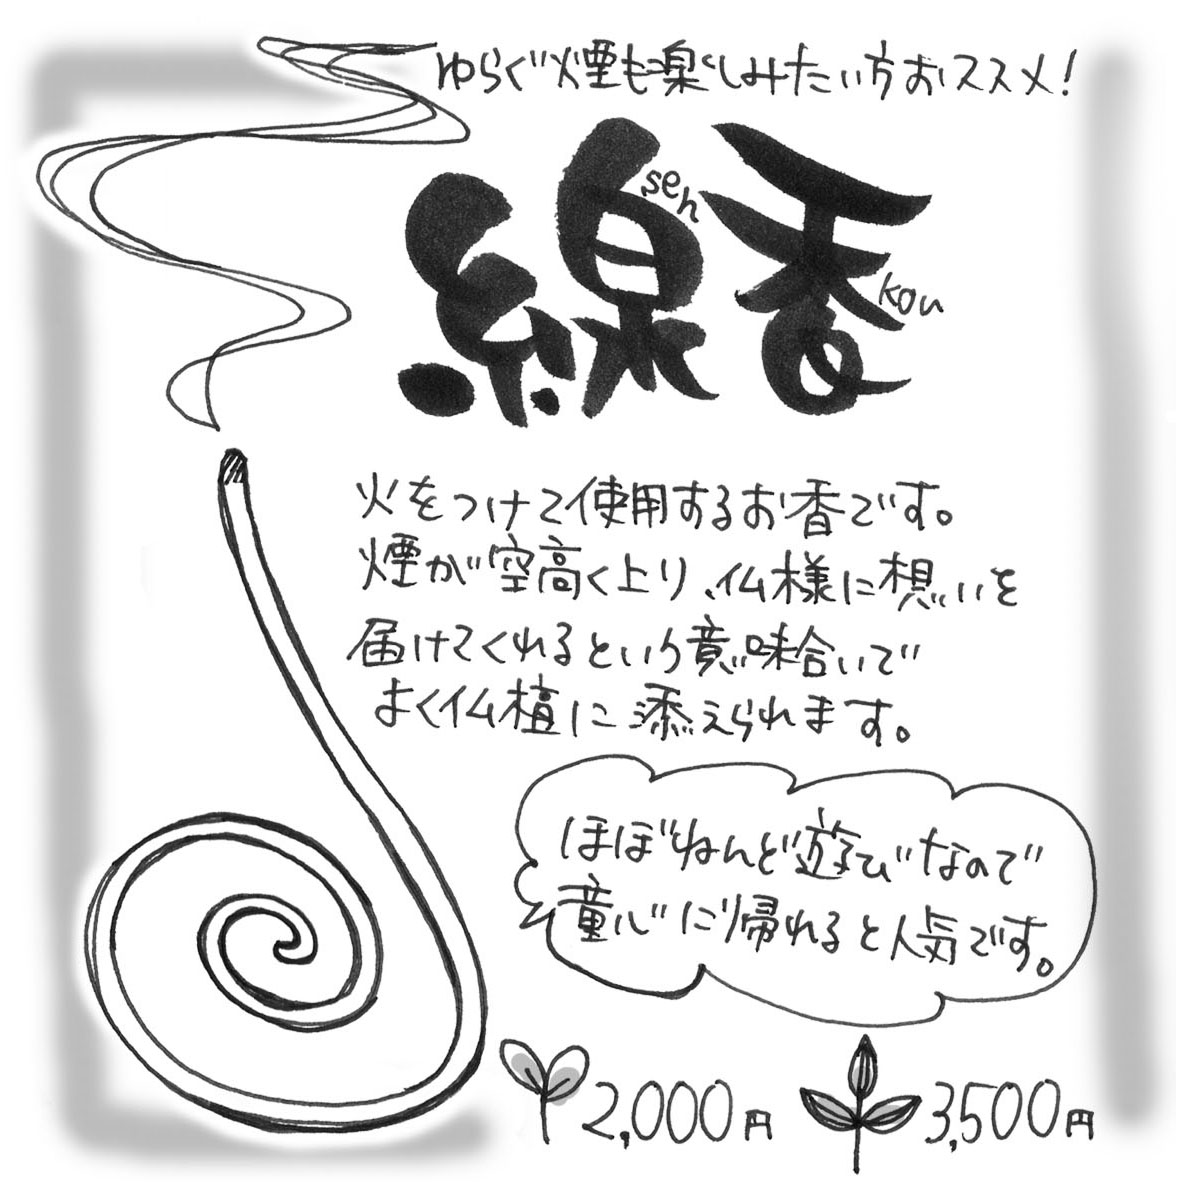 ゆらぐ煙も楽しみたい方おススメ!
線香
sen
kou
火をつけて使用するお香です。
煙が空高く上り、仏様に想いを
届けてくれるという意味合いで
よく仏壇に添えられます。
ほぼねんど遊びなので
童心に帰れると人気です。
2,000円
3,500円